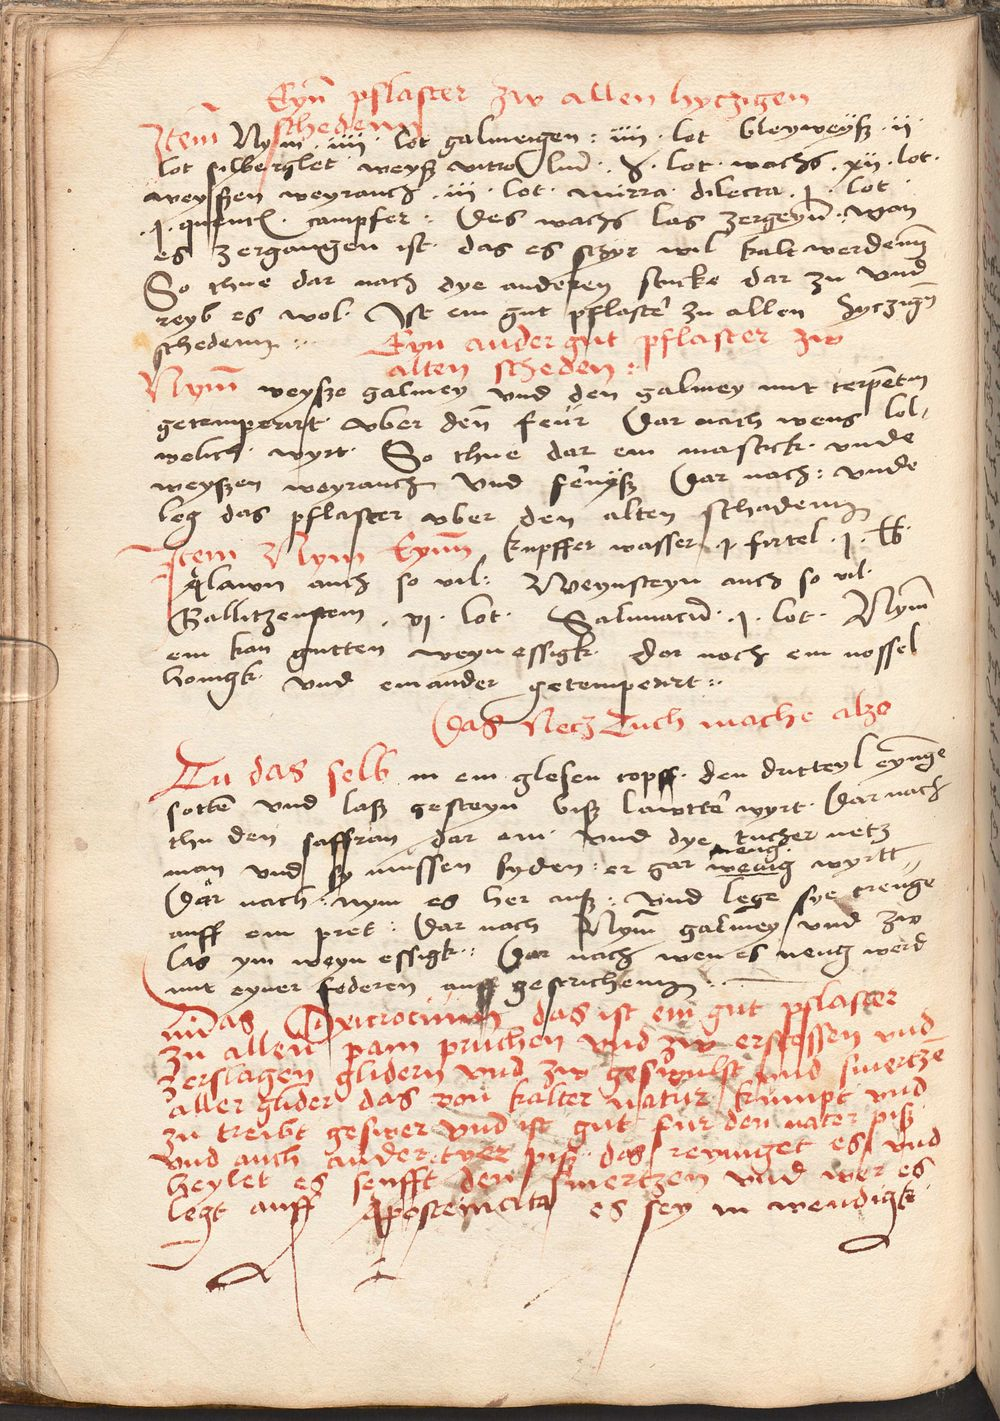 Eyn̄ pflaster zw allen hyczigen
schedenn
Item Nym · iiii · lot galmeigen : iiii · lot bleyweyß · ii ·
lot silberglet weyß vitro lot wachs · xii · lot ·
weyssen weyrauch · iii · lot · mirra · dilecta · j · lot
· j · quentl · campfer : Des wachs las zergeyn̄ · wan
es zergangen ist · das es schyr wil kalt werdenn
So thue dar nach dye anderen stucke dar zu vnd
reyb es wol · Ist ein gut pflaster zu allen hyczign̄
schedenn :·
Eyn ander gut pflaster zw
alten scheden :
Nym̄ weysze galmey vnd den galmey mit terpētin
getemperirt vber den̄ feur Dar nach wens
welich wyrt · So thue dar ein mastick · vnde
weyßen weyrauch vnd fernyß Dar nach : vnde
leg das pflaster vber den alten schadenn
Item Nym Eynn kupffer wasser · j · firtel · j · lb ·
Alawn auch so vil : Weynsteyn auch so vil ·
Gallitzenstein · vj · lot · · j · lot · Nym̄
ein kan gutten weyn essigk · dar nach ein nossel
honigk · vnd einander getemperirt :·
Das Necz Tuch mache alzo
Tu das selb in ein glesen topff · den dritteyl eynge
sotten vnd laß gesteyn biß lawtter wyrt · Dar nach
thu den saffran dar ein · vnd dye tucher netz
man vnd sy mussen syden : er gar wenig wyrtt
Dar nach : nym es her auß : vnd lege sye trenge
auff ein pret : Dar nach Nym̄ galmey vnd zw
las ym weyn essigk :· Dar nach wen es werd
mit eyner federen auff gestrichenn :·
das ist ein gut pflaster
zu allen pain pruchen vnd zw erstossen vnd
zerslagen glidern vnd zw geswulst vnd smertzē
aller glider das von kalter natur kumpt vnd
zu treibt geswer vnd ist gut fur den nater piß
vnd auch ander piß · das reyniget es vnd
heylet es senfft den smertzen vnd wer es
legt auff Apostemata es sey in wendigk